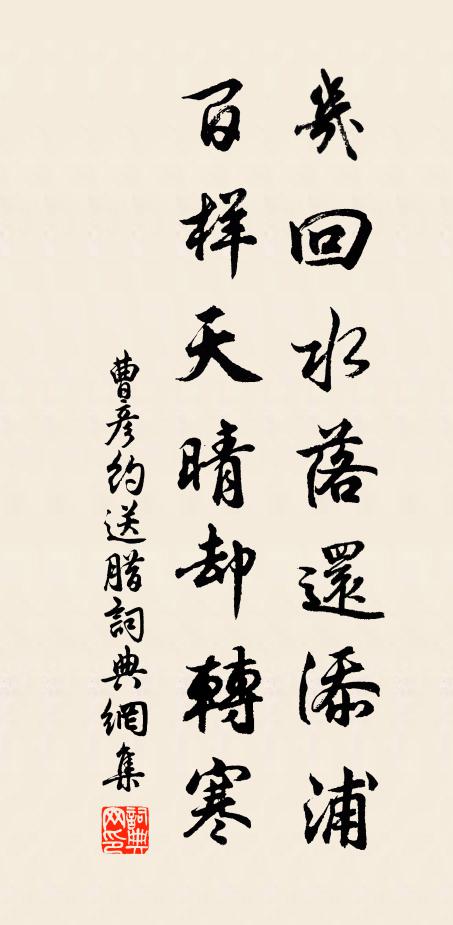 幾回水落還添浦
百樣天晴却轉寒
曹彦約送腊詞典網集
詞典網印